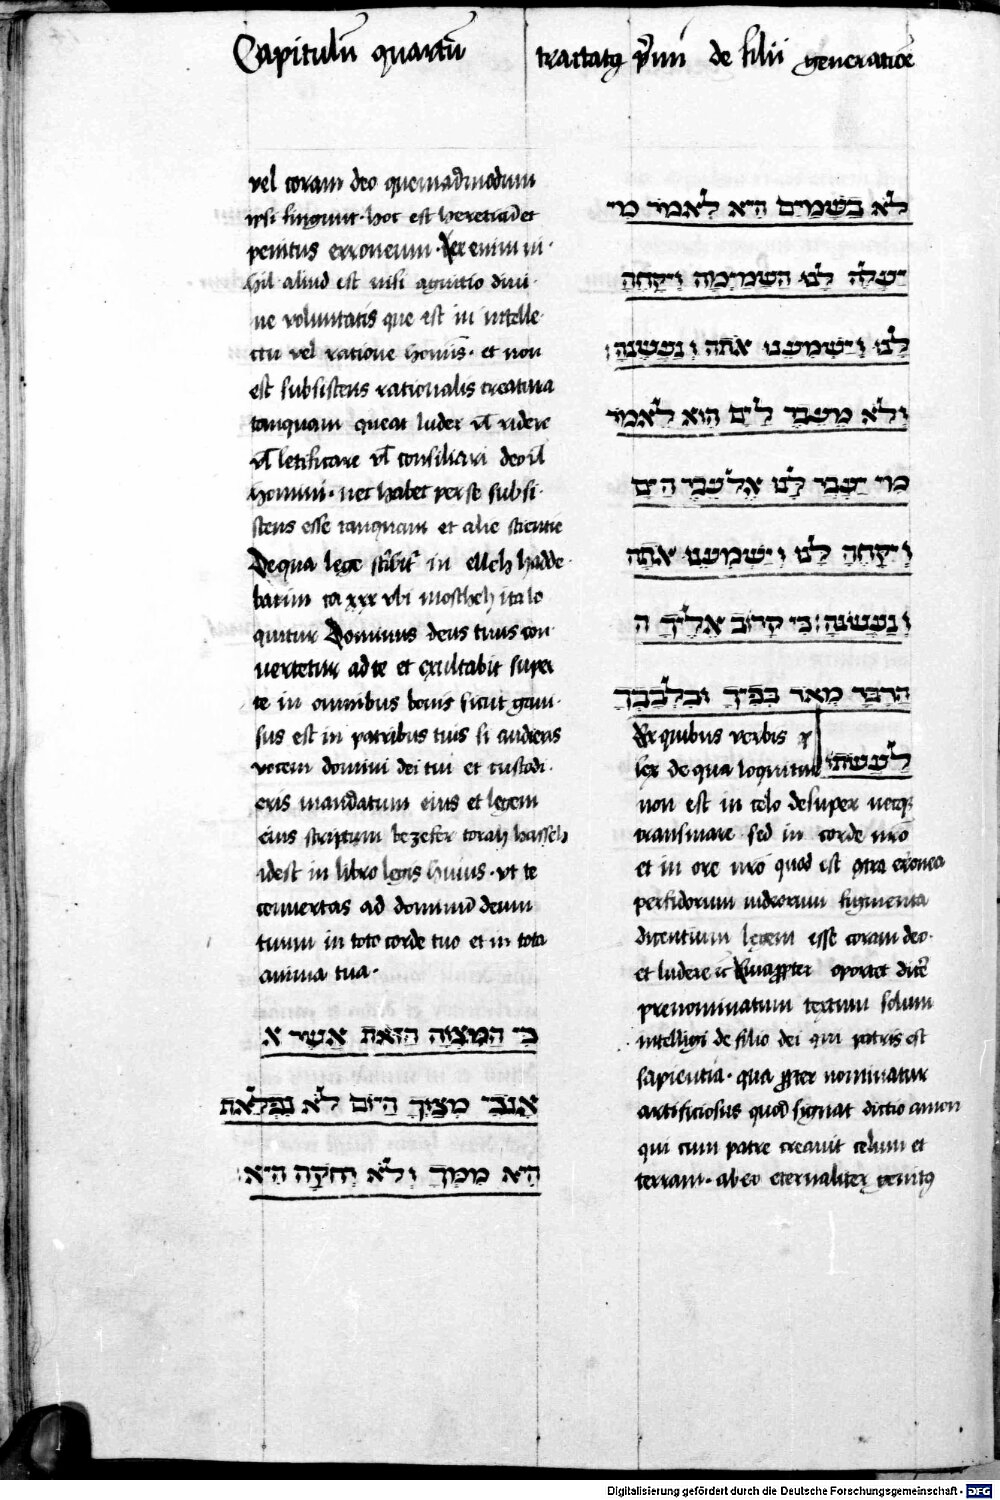 Capitulū quartū tractatꝯ p̄mi de filii generatiōe
vel coram deo quemadmodum
ipsi fingunt · hoc est hereticū et
penitus erroneum · Lex enim ni·
hil aliud est nisi agnitio divi·
ne voluntatis que est in intelle·
ctu vel ratione homīs · et non
est subsistens rationalis creatura
tanquam queat ludere vl̄ ridere
vl̄ letificare vl̄ consiliari deo vl̄
homini · nec habet per se subsi·
stens esse tanquam et alie scientie
De qua lege scͥbit᷑ in elleh hadde
barim ca xxx vbi moscheh ita lo
quitur Dominus deus tuus con
vertetur ad te et exultabit super
te in omnibus bonis sicut gavi·
sus est in patribus tuis si audieris
vocem domini dei tui et custodi·
eris mandatum eius et legem
eius scriptum bezefer torah hasseh
idest in libro legis huius · vt te
convertas ad dominū deum
tuum in toto corde tuo et in tota
anima tua ·
כִּי הַמִּצְוָה הַזֹּאת אֲשֶׁר א
אָנֹכִי מְצַוְּךָ הַיּוֹם לֹא נִפְלֵאת
הִיא מִמְּךָ וְלֹא רְחֹקָה הִיא׃
לֹא בַשָּׁמַיִם הִיא לֵאמֹר מִי
יַעֲלֶה לָּנוּ הַשָּׁמַיְמָה וְיִקָּחֶהָ
לָּנוּ וְיַשְׁמִעֵנוּ אֹתָהּ וְנַעֲשֶׂנָּה׃
וְלֹא מֵעֵבֶר לַיָּם הִוא לֵאמֹר
מִי יַעֲבָר לָנוּ אֶל עֵבֶר הַיָּם
וְיִקָּחֶהָ לָּנוּ וְיַשְׁמִעֵנוּ אֹתָהּ
וְנַעֲשֶׂנָּה׃ כִּי קָרוֹב אֵלֶיךָ ה
הַדָּבָר מְאֹד בְּפִיךָ וּבִלְבָבְךָ
לַעֲשֹׂתוֹ
Ex quibus verbis ꝓ
lex de qua loquitur
non est in celo desuper neqꝫ
transmare · sed in corde nr̄o
et in ore nr̄o quod est ꝯtra erronea
perfidorum iudeorum figmenta
dicentium legem esse coram deo ·
et ludere ⁊c̄ Quapropter oportet dicē
prenominatum textum solum
intelligi de filio dei qui patris est
sapientia · qua ꝓpter nominatur
artificiosus quod signat dictio amon
qui cum patre creavit celum et
terram · ab eo eternaliter genitꝯ
Digitalisierung gefördert durch die Deutsche Forschungsgemeinschaft - DFG